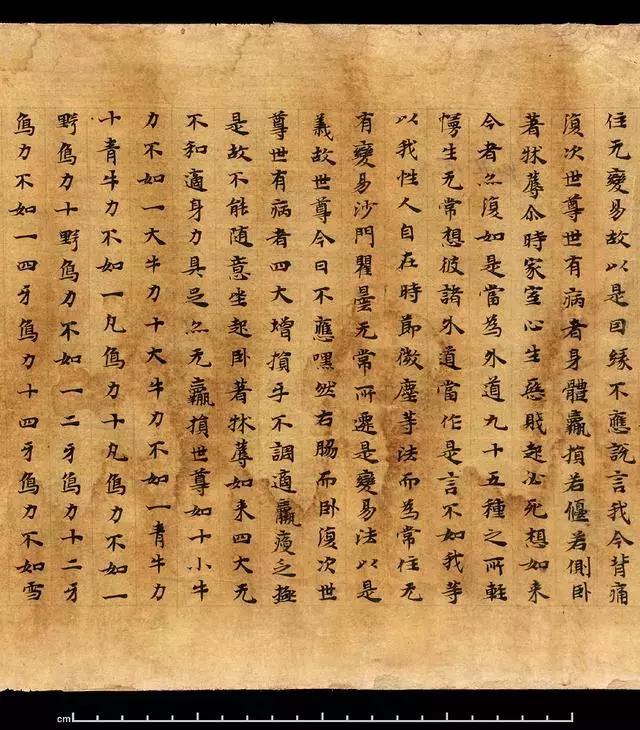 住无變易故以是因緣不應說言我今背痛
復次世尊世有病者身體羸損若偃若側卧
著牀蓐尒時家室心生惡賤起必死想如来
今者亦復如是當為外道九十五種之所軽
慢生无常想彼諸外道當作是言不如我等
以我性人自在時節微塵等法而為常住无
有變易沙門瞿曇无常所遷是變易法以是
義故世尊今日不應嘿然右脇而卧復次世
尊世有病者四大增損㸦不調適羸瘦乏極
是故不能随意坐起卧著牀蓐如来四大无
不和適身力具足亦无羸損世尊如十小牛
力不如一大牛力十大牛力不如一青牛力
十青牛力不如一凡象力十凡象力不如一
野象力十野象力不如一二牙象力十二牙
象力不如一四牙象力十四牙象力不如雪
cm